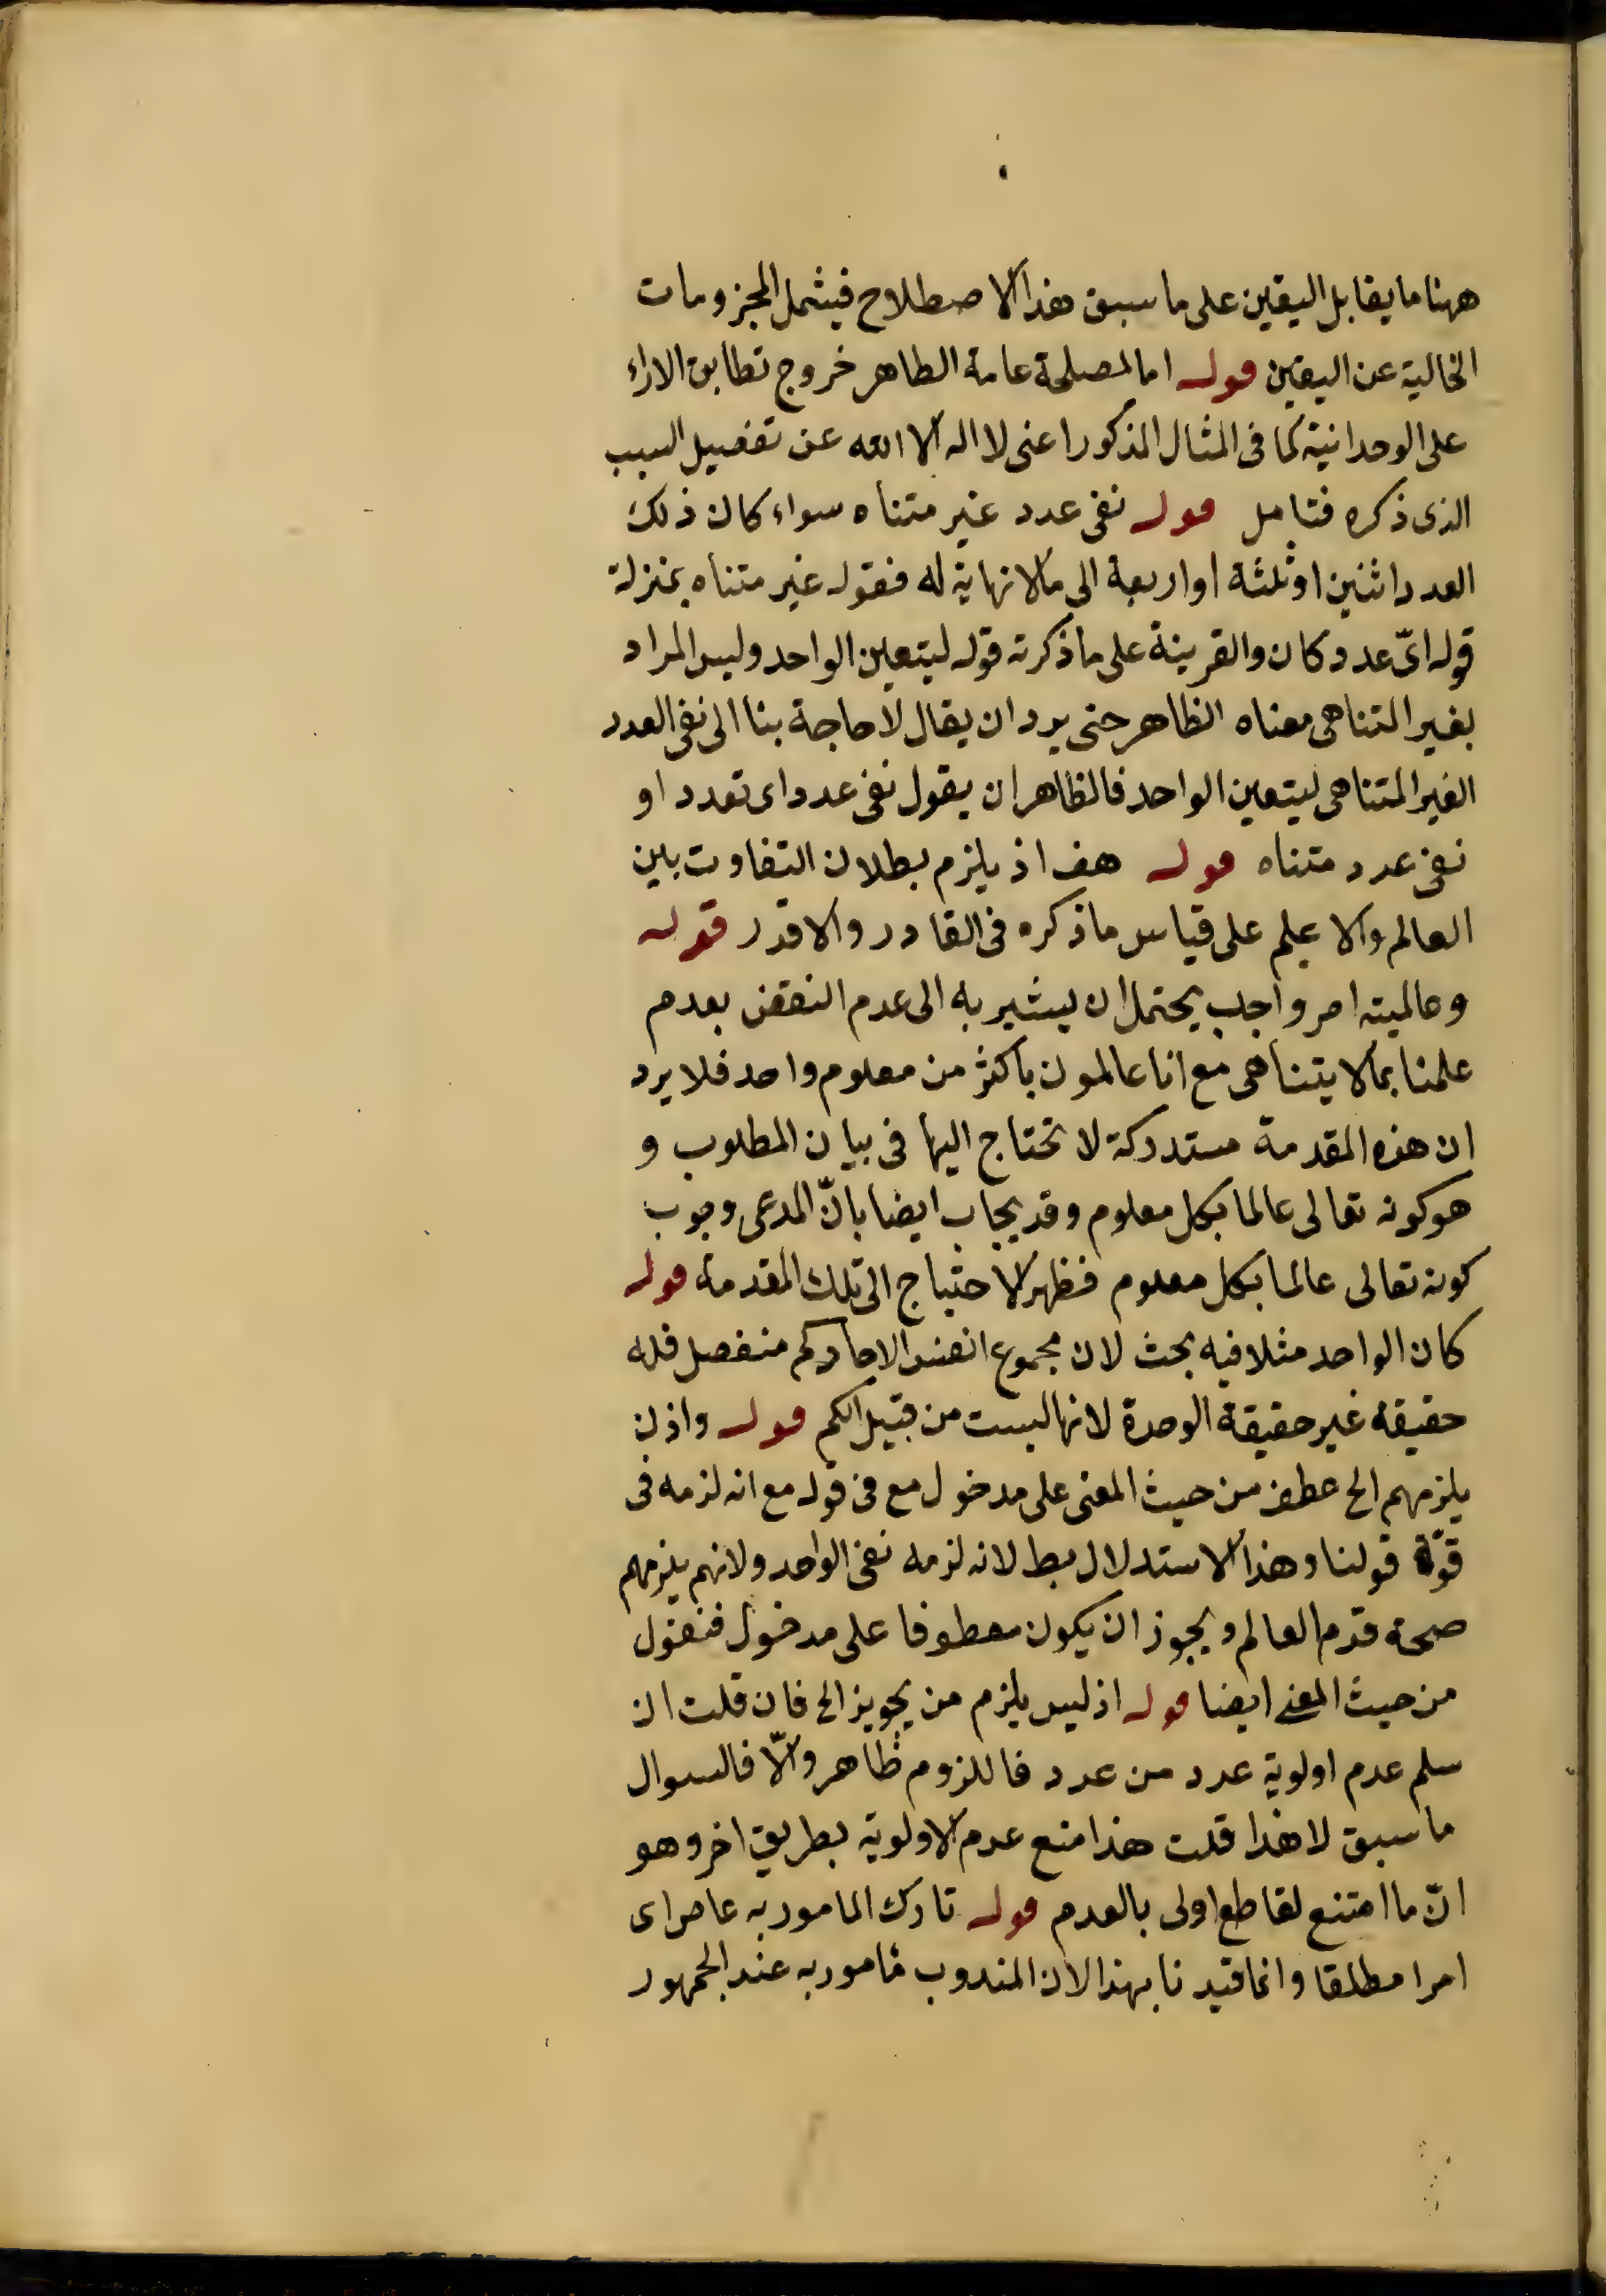 ههنا ما يقابل اليقين على ما سبق هذا الاصطلاح فيشمل المجزومات
الخالية عن اليقين قوله اما لمصلحة عامة الظاهر خروج تطابق الاراء
على الوحدانية كما فى المثال المذكور اعنى لا اله الا الله عن تفصيل السبب
الذى ذكره فتامل قوله نفى عدد غير متناه سواء كان ذلك
العدد اثنين او ثلثة او اربعة الى ما لا نهاية له فقوله غير متناه بمنزلة
قوله اىّ عدد كان والقرينة على ما ذكرته قوله ليتعين الواحد وليس المراد
بغير المتناهى معناه الظاهر حتى يرد ان يقال لا حاجة بنا الى نفى العدد
الغير المتناهى ليتعين الواحد فالظاهر ان يقول نفى عدد اى تعدد او
نفى عدد متناه قوله هف اذ يلزم بطلان التفاوت بين
العالم والاعلم على قياس ما ذكره فى القادر والاقدر قوله
وعالميته امر واجب يحتمل ان يشير به الى عدم النقض بعدم
علمنا بما لا يتناهى مع انا عالمون باكثر من معلوم واحد فلا يرد
ان هذه المقدمة مستدركة لا تحتاج اليها فى بيان المطلوب و
هو كونه تعالى عالما بكل معلوم وقد يجاب ايضا بانّ المدعى وجوب
كونه تعالى عالما بكل معلوم فظهر الاحتياج الى تلك المقدمة قوله
كان الواحد مثلا فيه بحث لان مجموع انفس الاحاد كم منفصل فله
حقيقة غير حقيقة الوحدة لانها ليست من قبيل الكم قوله واذن
يلزمهم الخ عطف من حيث المعنى على مدخول مع فى قوله مع انه لزمه فى
قوّة قولنا وهذا الاستدلال بط لانه لزمه نفى الواحد ولانهم يلزمهم
صحة قدم العالم ويجوز ان يكون معطوفا على مدخول فنقول
من حيث المعنى ايضا قوله اذ ليس يلزم من تجويز الخ فان قلت ان
سلم عدم اولوية عدد من عدد فاللزوم ظاهر والّا فالسوال
ما سبق لا هذا قلت هذا منع عدم الاولوية بطريق اخر وهو
انّ ما امتنع لقاطع اولى بالعدم قوله تارك المامور به عاص اى
امرا مطلقا وانما قيدنا بهذا لان المندوب مامور به عند الجمهور